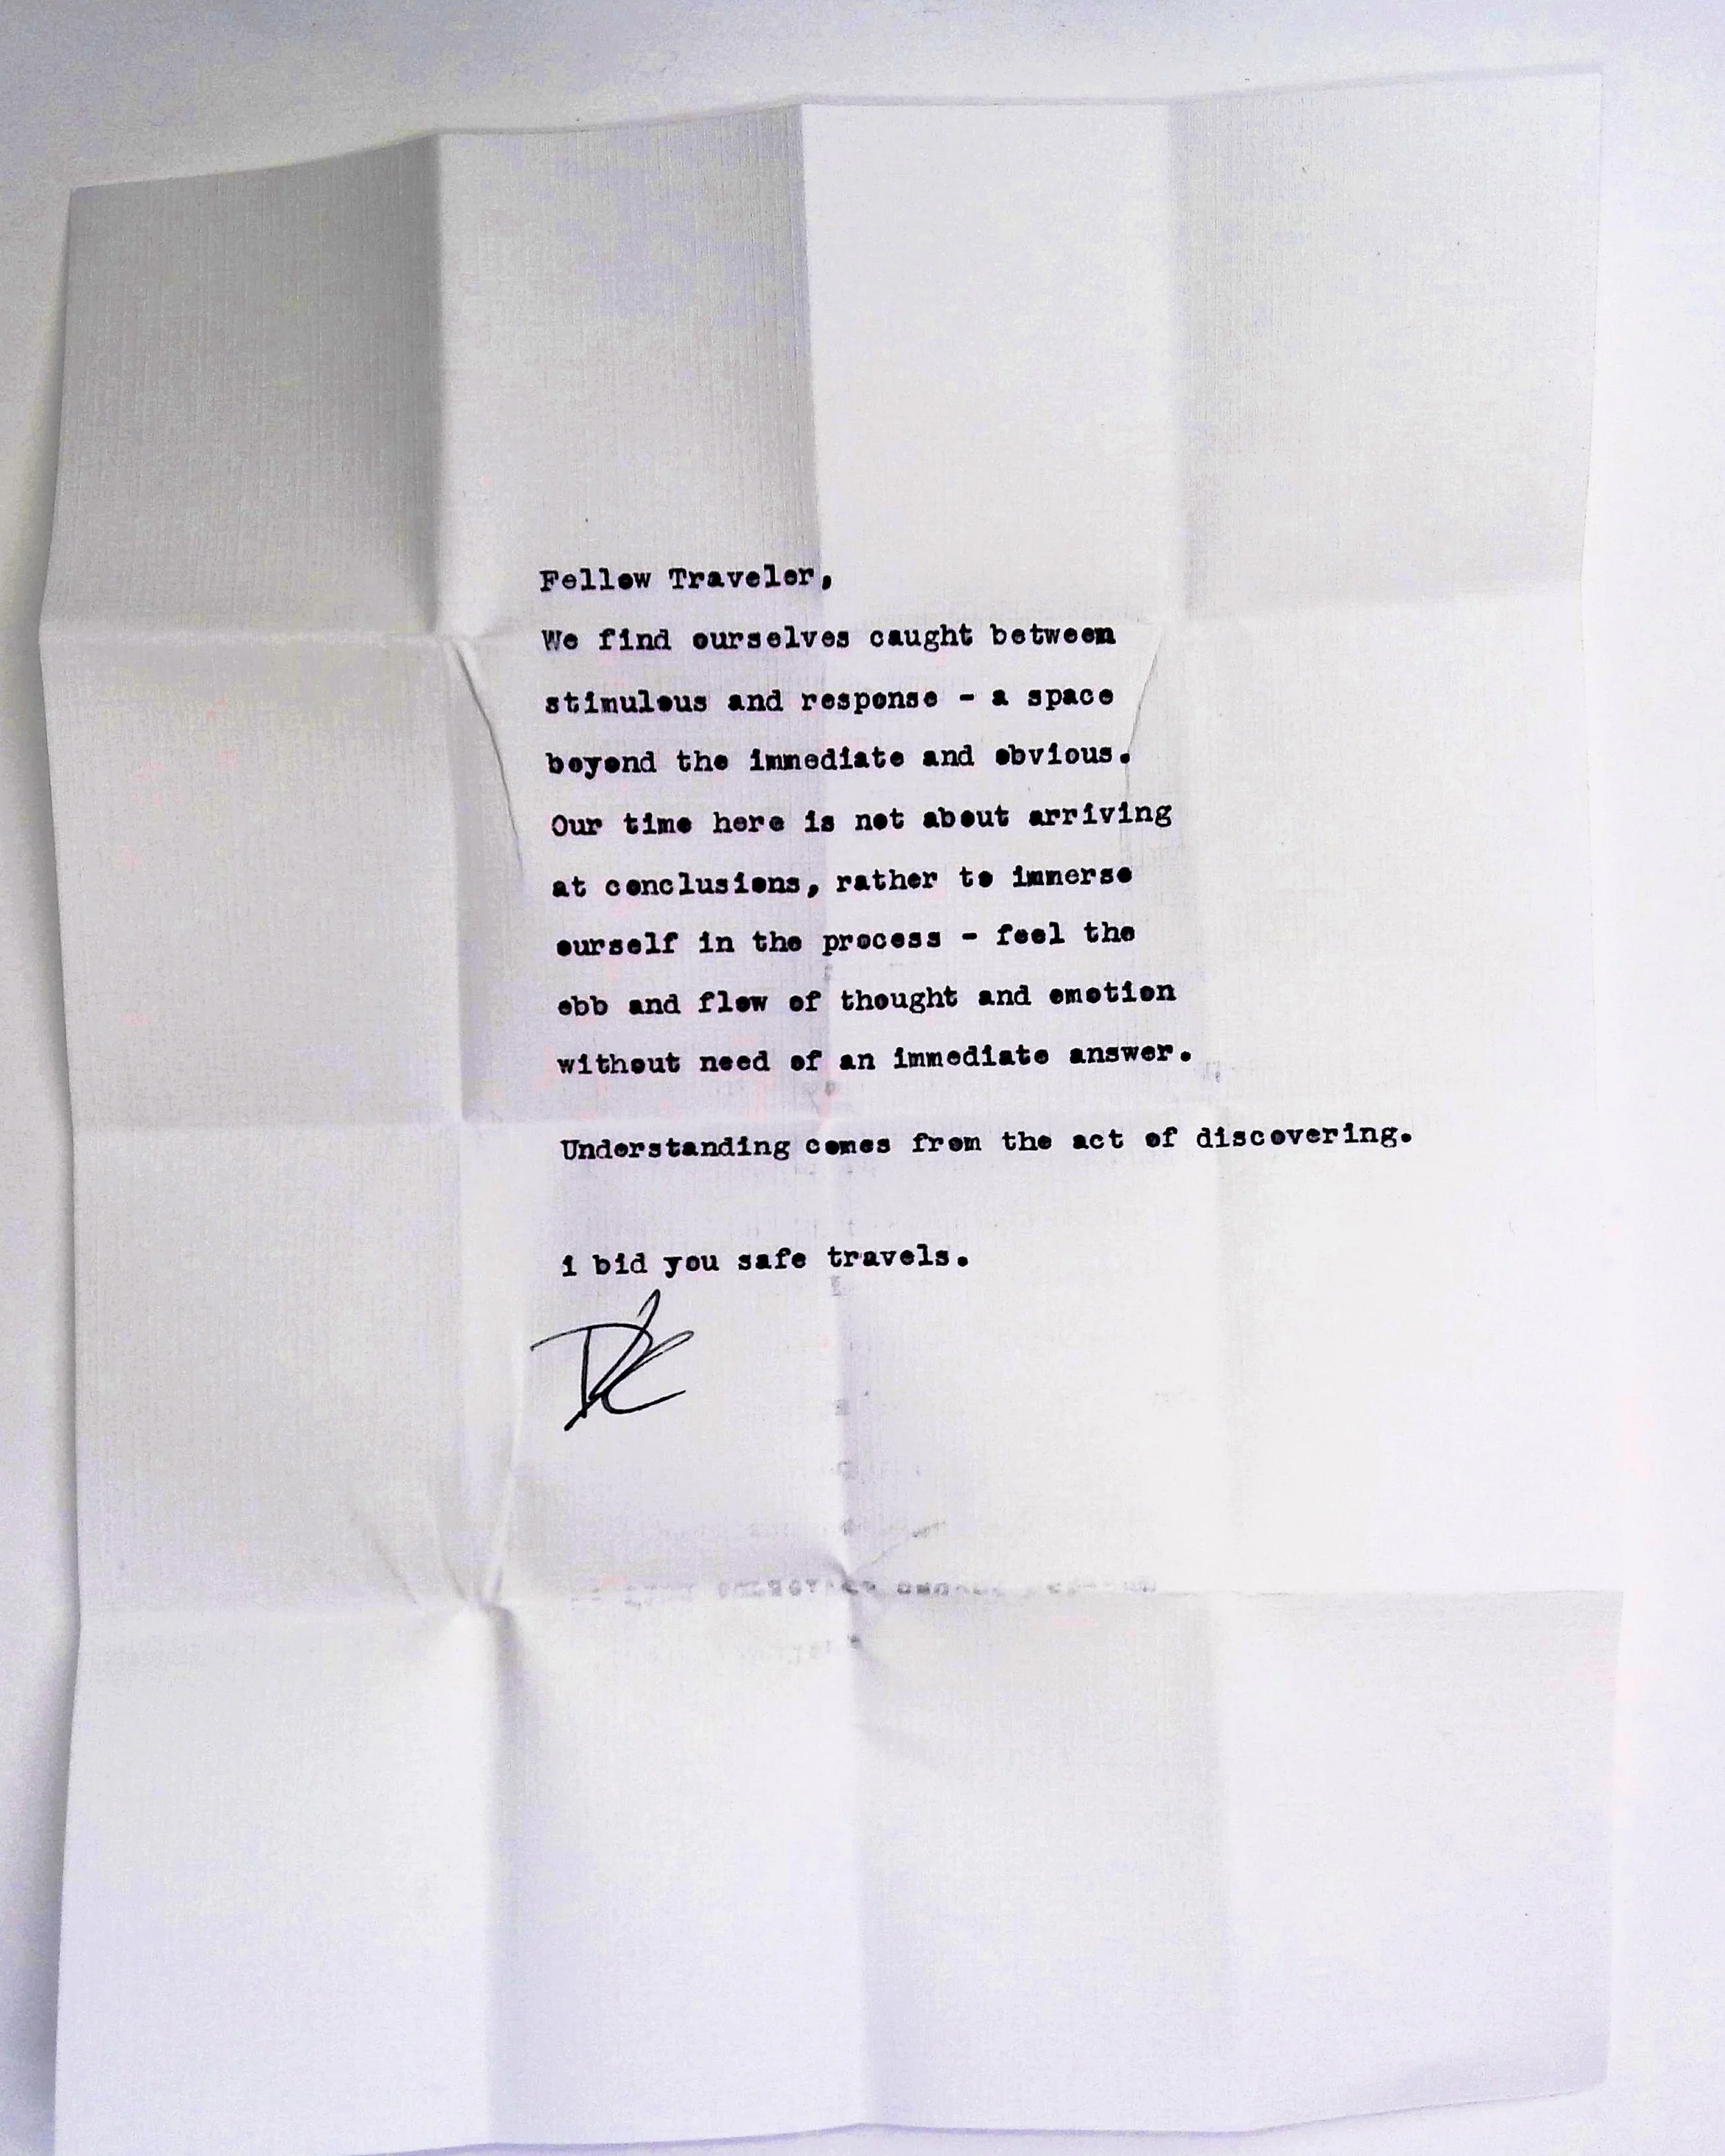 Fellow Traveler,
We find ourselves caught between
stimulous and response - a space
beyond the immediate and obvious.
Our time here is not about arriving
at conclusions, rather to immerse
ourself in the process - feel the
ebb and flow of thought and emotion
without need of an immediate answer.
Understanding comes from the act of discovering.
i bid you safe travels.